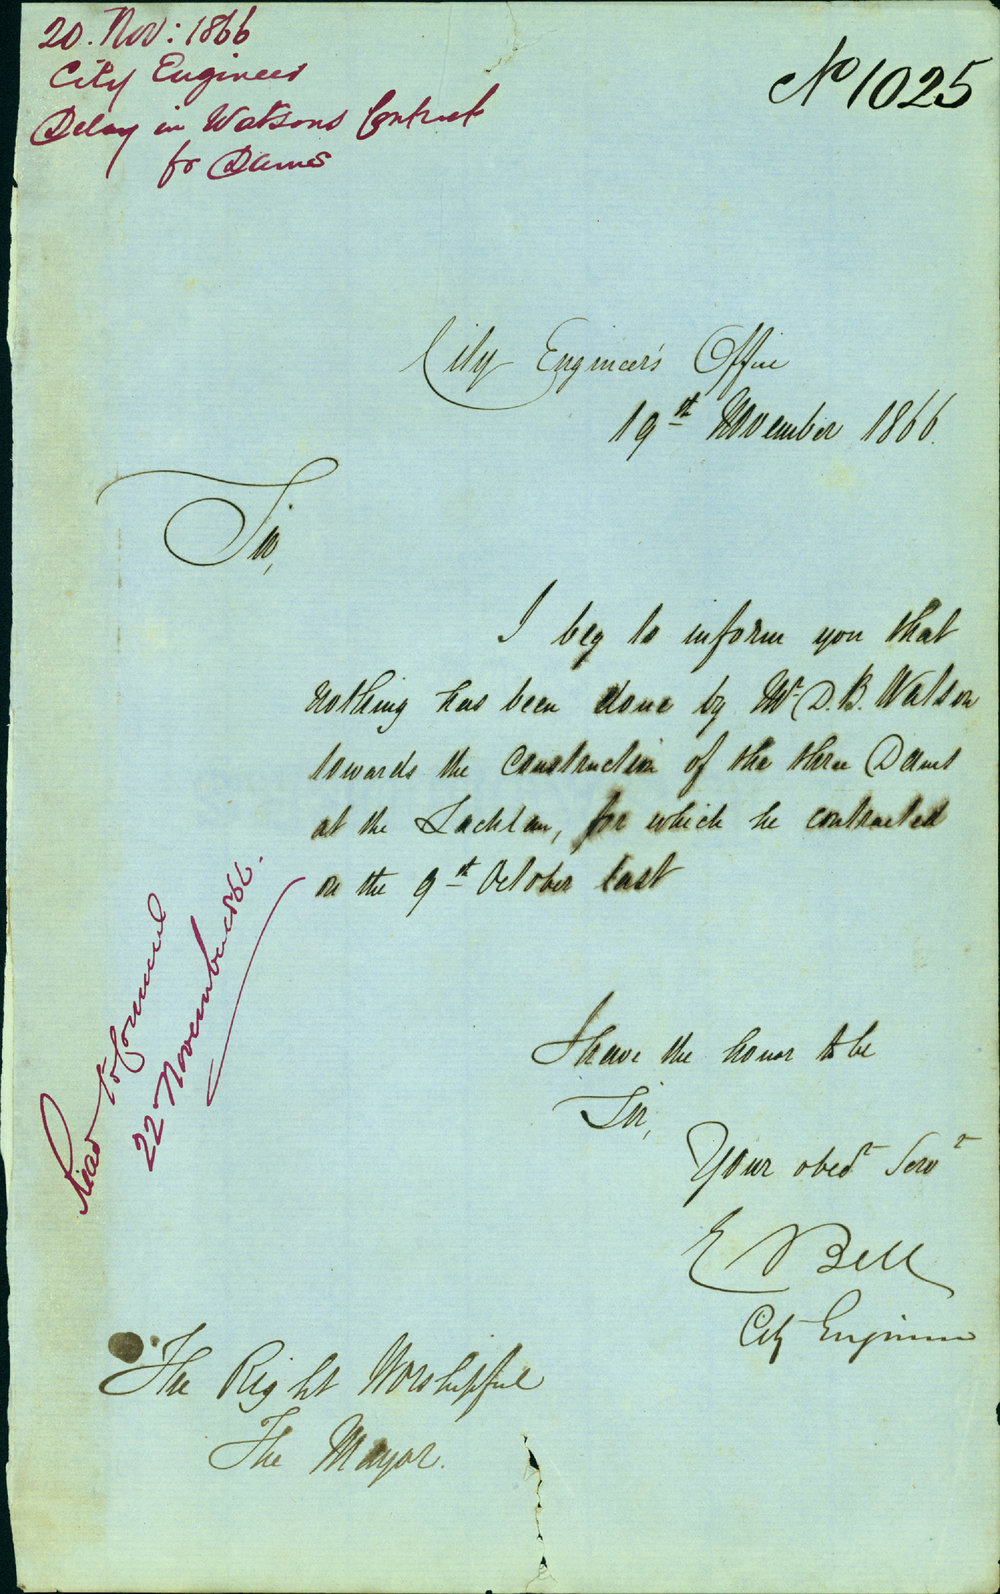 20. Nov: 1866
City Engineer
Delay in Watsons Contract
for Dams
No 1025
City Engineer's Office
19st November 1866.
Sir,
I beg to inform you that
nothing has been done by Mr. D. B. Watson
towards the construction of the three Dams
at the Lachlan, for which he contracted
on the 9st October last
Read to Council
22 November 1866.
I have the honor to be
Sir,
Your obedt Servt
E Bell
City Engineer
The Right Worshipful
The Mayor.